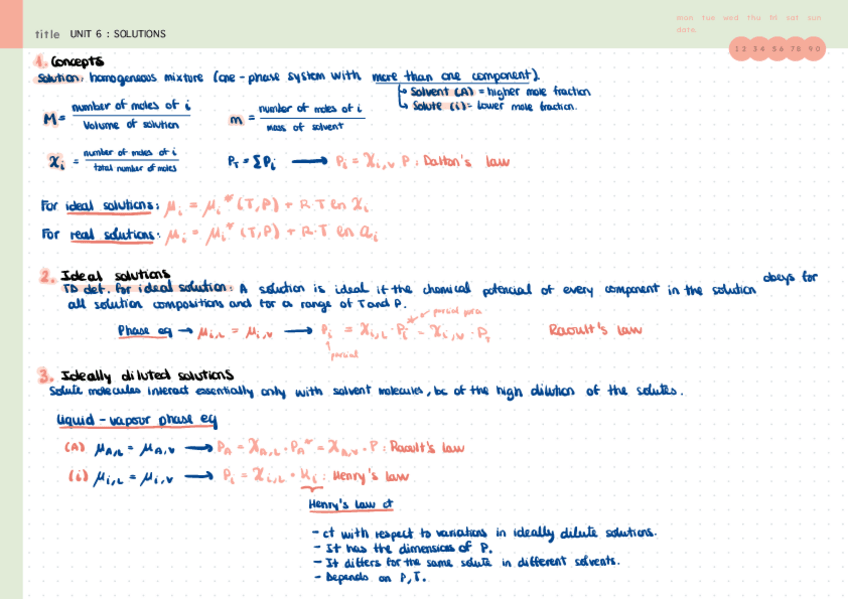 mon tue wed thu fri sat sun
title UNIT 6 : SOLUTIONS
date.
1 2 3 4 5 6 7 8 9 0
1. Concepts
Solution: homogeneous mixture (one-phase system with more than one component)
↳ Solvent (A) = higher mole fraction
↳ Solute (i) = lower mole fraction.
M = number of moles of i / Volume of solution
m = number of moles of i / mass of solvent
χi = number of moles of i / total number of moles
PT = ΣPi ⟶ Pi = χi,v P : Dalton's law
For ideal solutions: μi = μi* (T,P) + R·T ln χi
For real solutions: μi = μi* (T,P) + R·T ln ai
2. Ideal solutions
TD def. for ideal solution: A solution is ideal if the chemical potencial of every component in the solution obeys for
all solution compositions and for a range of T and P.
Phase eq → μi,L = μi,v ⟶ Pi = χi,L · Pi* = χi,v · PT Raoult's law
partial
3. Ideally diluted solutions
Solute molecules interact essentially only with solvent molecules, bc of the high dilution of the solutes.
Liquid - vapour phase eq
(A) μA,L = μA,v ⟶ PA = χA,L · PA* = χA,v · P : Raoult's law
(i) μi,L = μi,v ⟶ Pi = χi,L · Ki : Henry's law
Henry's law ct
- ct with respect to variations in ideally dilute solutions.
- It has the dimensions of P.
- It differs for the same solute in different solvents.
- Depends on P, T.